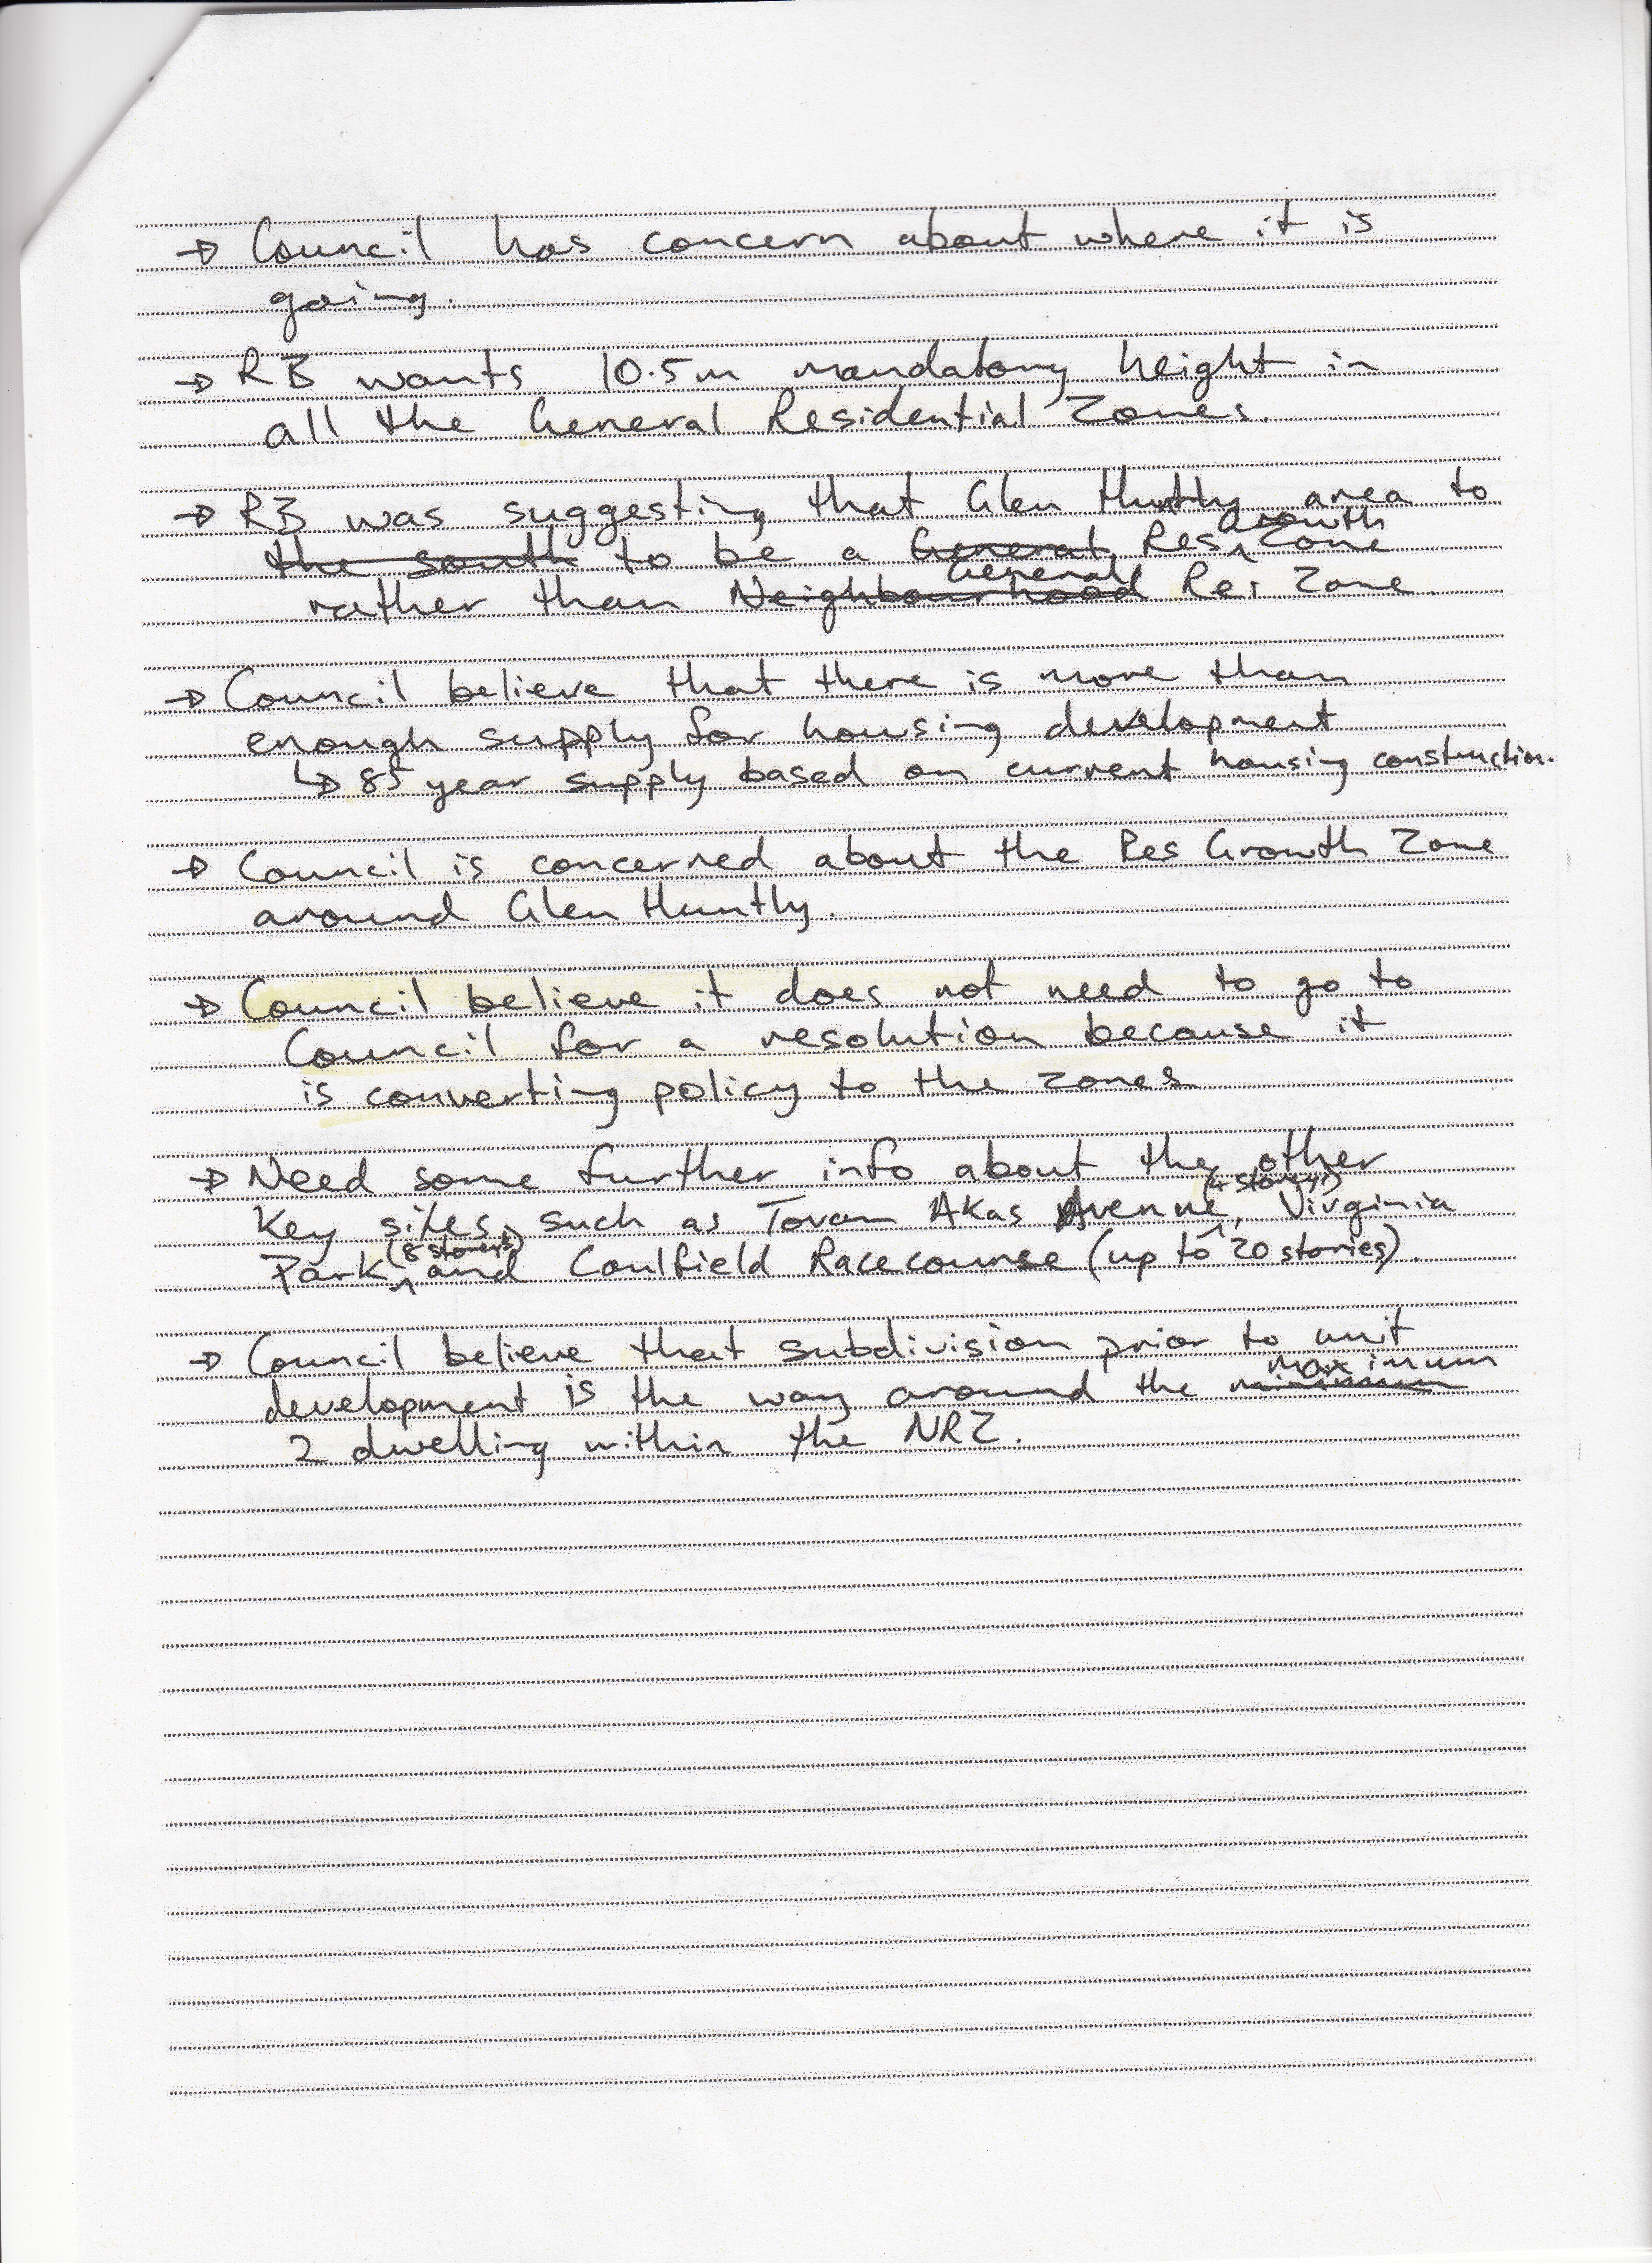 → Council has concern about where it is
going.
→ RB wants 10.5m mandatory height in
all the General Residential Zones.
→ RB was suggesting that Glen Huntly area to
the south to be a General Res Growth Zone
rather than Neighbourhood General Res Zone.
→ Council believe that there is more than
enough supply for housing development
↳ 85 year supply based on current housing construction.
→ Council is concerned about the Res Growth Zone
around Glen Huntly.
→ Council believe it does not need to go to
Council for a resolution because it
is converting policy to the zones
→ Need some further info about the other
Key sites, such as Tovan Akas Avenue (4 stories), Virginia
Park (8 stories) and Caulfield Racecourse (up to 20 stories).
→ Council believe that subdivision prior to unit
development is the way around the minimum maximum
2 dwelling within the NRZ.